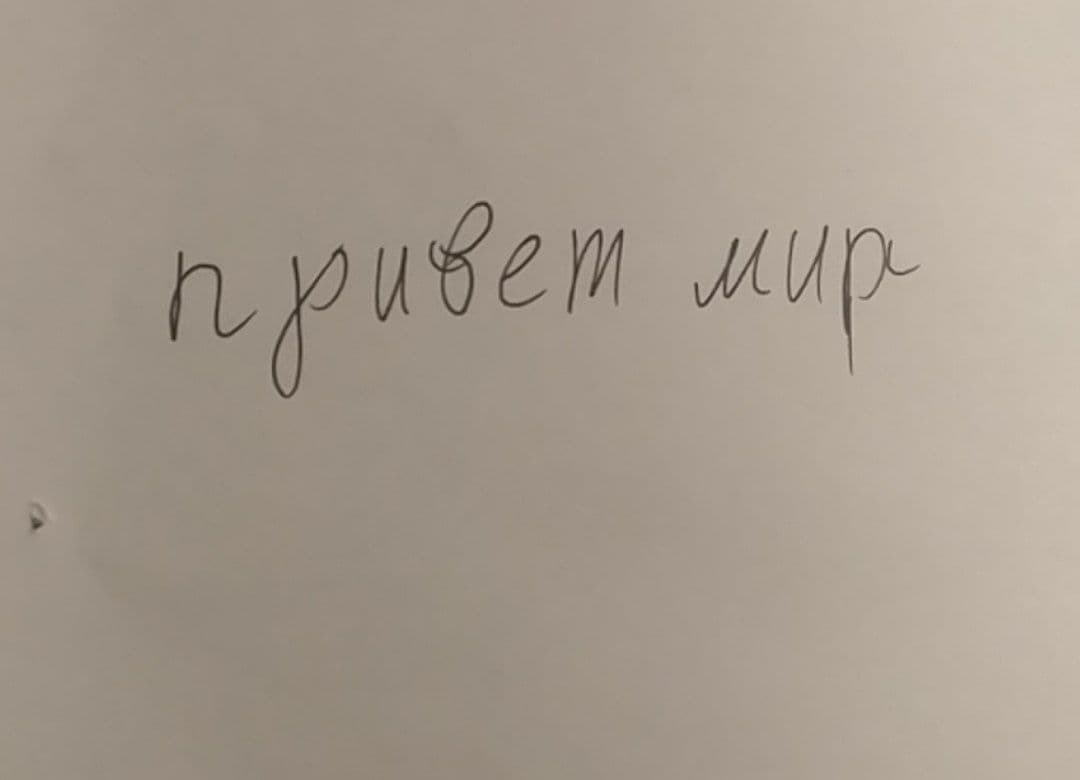 привет мир